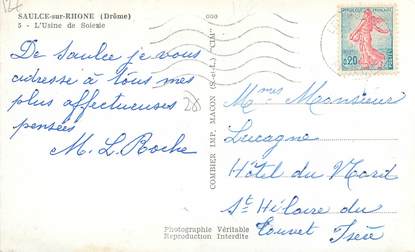 SAULCE-sur-RHONE (Drôme)
5 - L'Usine de Soierie
De Saulce je vous
adresse à tous mes
plus affectueuses
pensées
M. L. Roche
28
COMBIER IMP. MACON (S.-et-L.) "CIM"
REPUBLIQUE FRANÇAISE
0,20
POSTES
Mmes Monsieur
Lucagne
Hôtel du Nord
St Hilaire du
Touvet Isère
Photographie Véritable
Reproduction Interdite